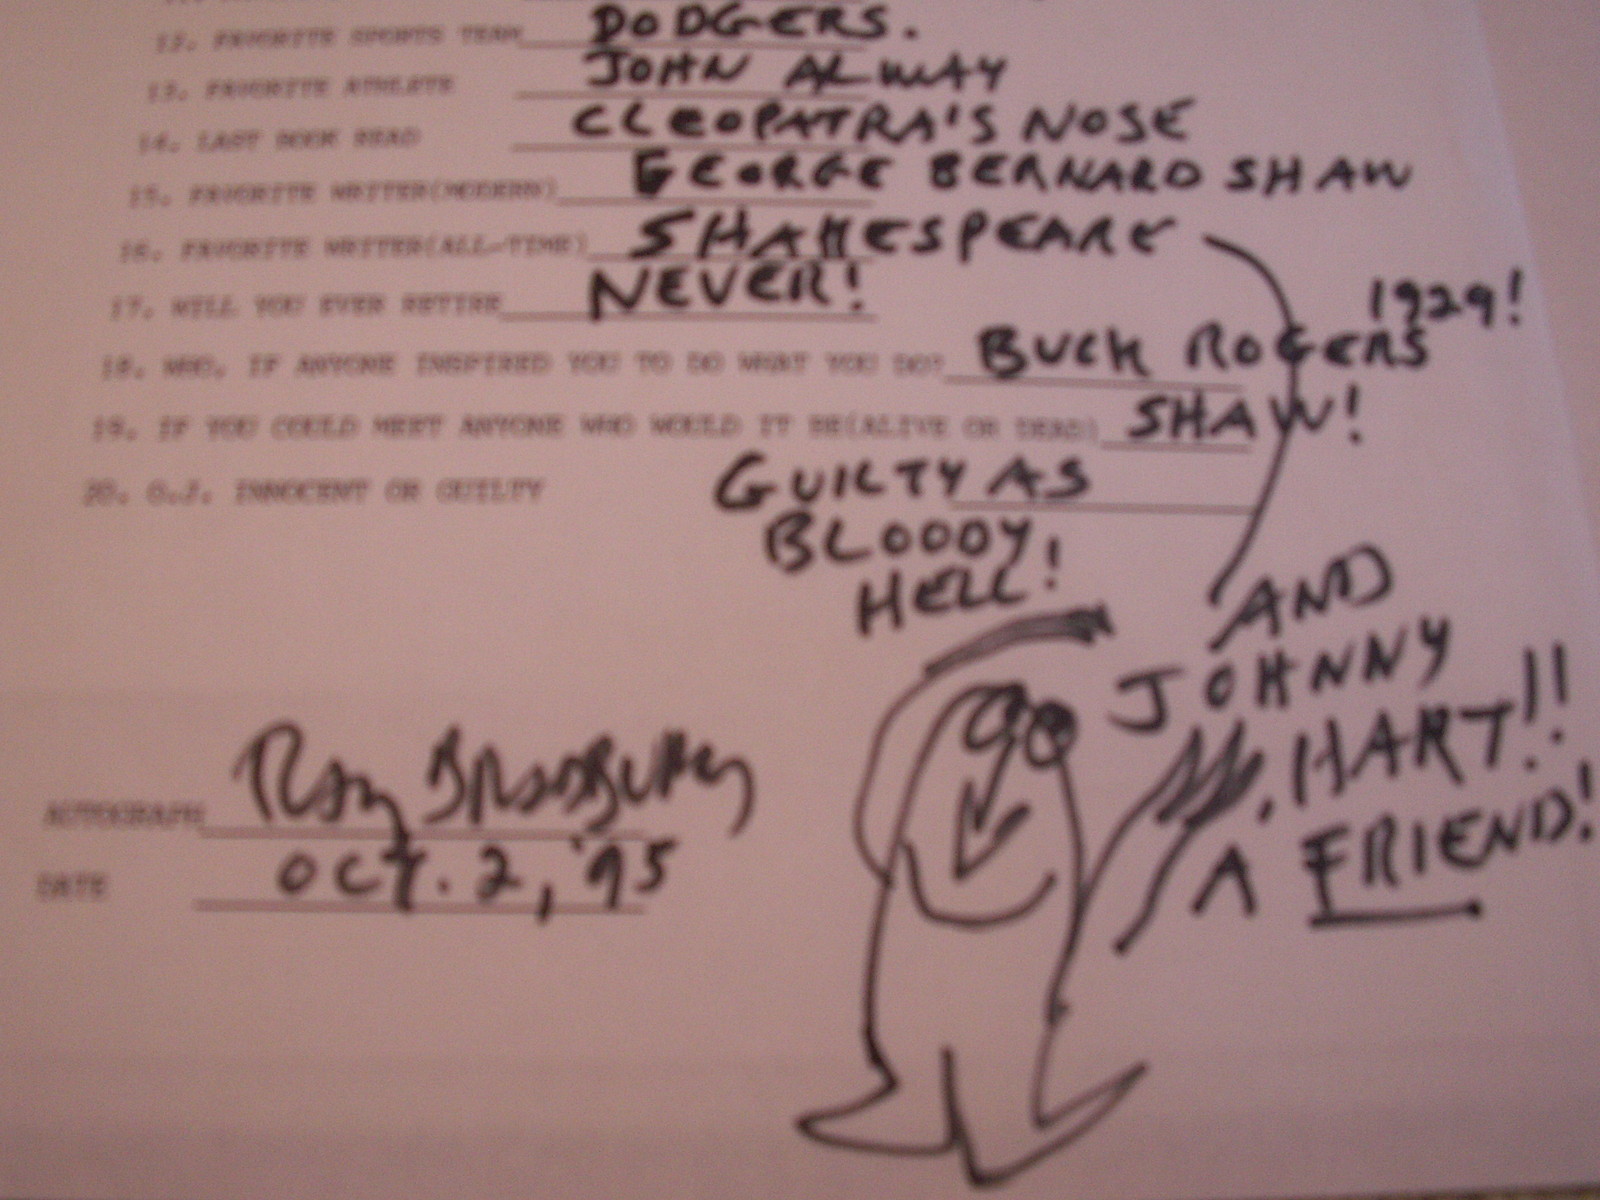 12. FAVORITE SPORTS TEAM DODGERS.
13. FAVORITE ATHLETE JOHN ALWAY
14. LAST BOOK READ CLEOPATRA'S NOSE
15. FAVORITE WRITER(MODERN) GEORGE BERNARD SHAW
16. FAVORITE WRITER(ALL-TIME) SHAKESPEARE
17. WILL YOU EVER RETIRE NEVER!
1929!
18. WHO, IF ANYONE INSPIRED YOU TO DO WHAT YOU DO? BUCK ROGERS
19. IF YOU COULD MEET ANYONE WHO WOULD IT BE(ALIVE OR DEAD) SHAW!
20. O.J. INNOCENT OR GUILTY GUILTY AS
BLOODY
HELL!
AND
JOHNNY
HART!!
A FRIEND!
AUTOGRAPH Ray Bradbury
DATE OCT. 2, '95